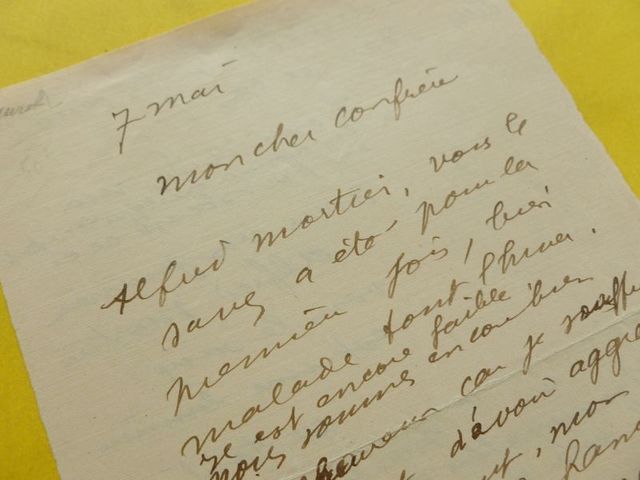 7 mai
mon cher confrère
Alfred mortier, vous le
savez a été pour la
première fois,
malade tout l'hiver.
il est encore faible
nous sommes encore bien
car je souffre
d'avoir
mon